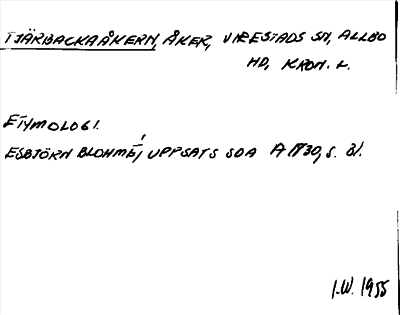 TJÄRBACKAÅKERN, ÅKER, VIRESTADS SN, ALLBO
HD, KRON. L.
ETYMOLOGI.
ESBJÖRN BLOHMÉ, UPPSATS SOA A 1730, S. 31.
I.W. 1955